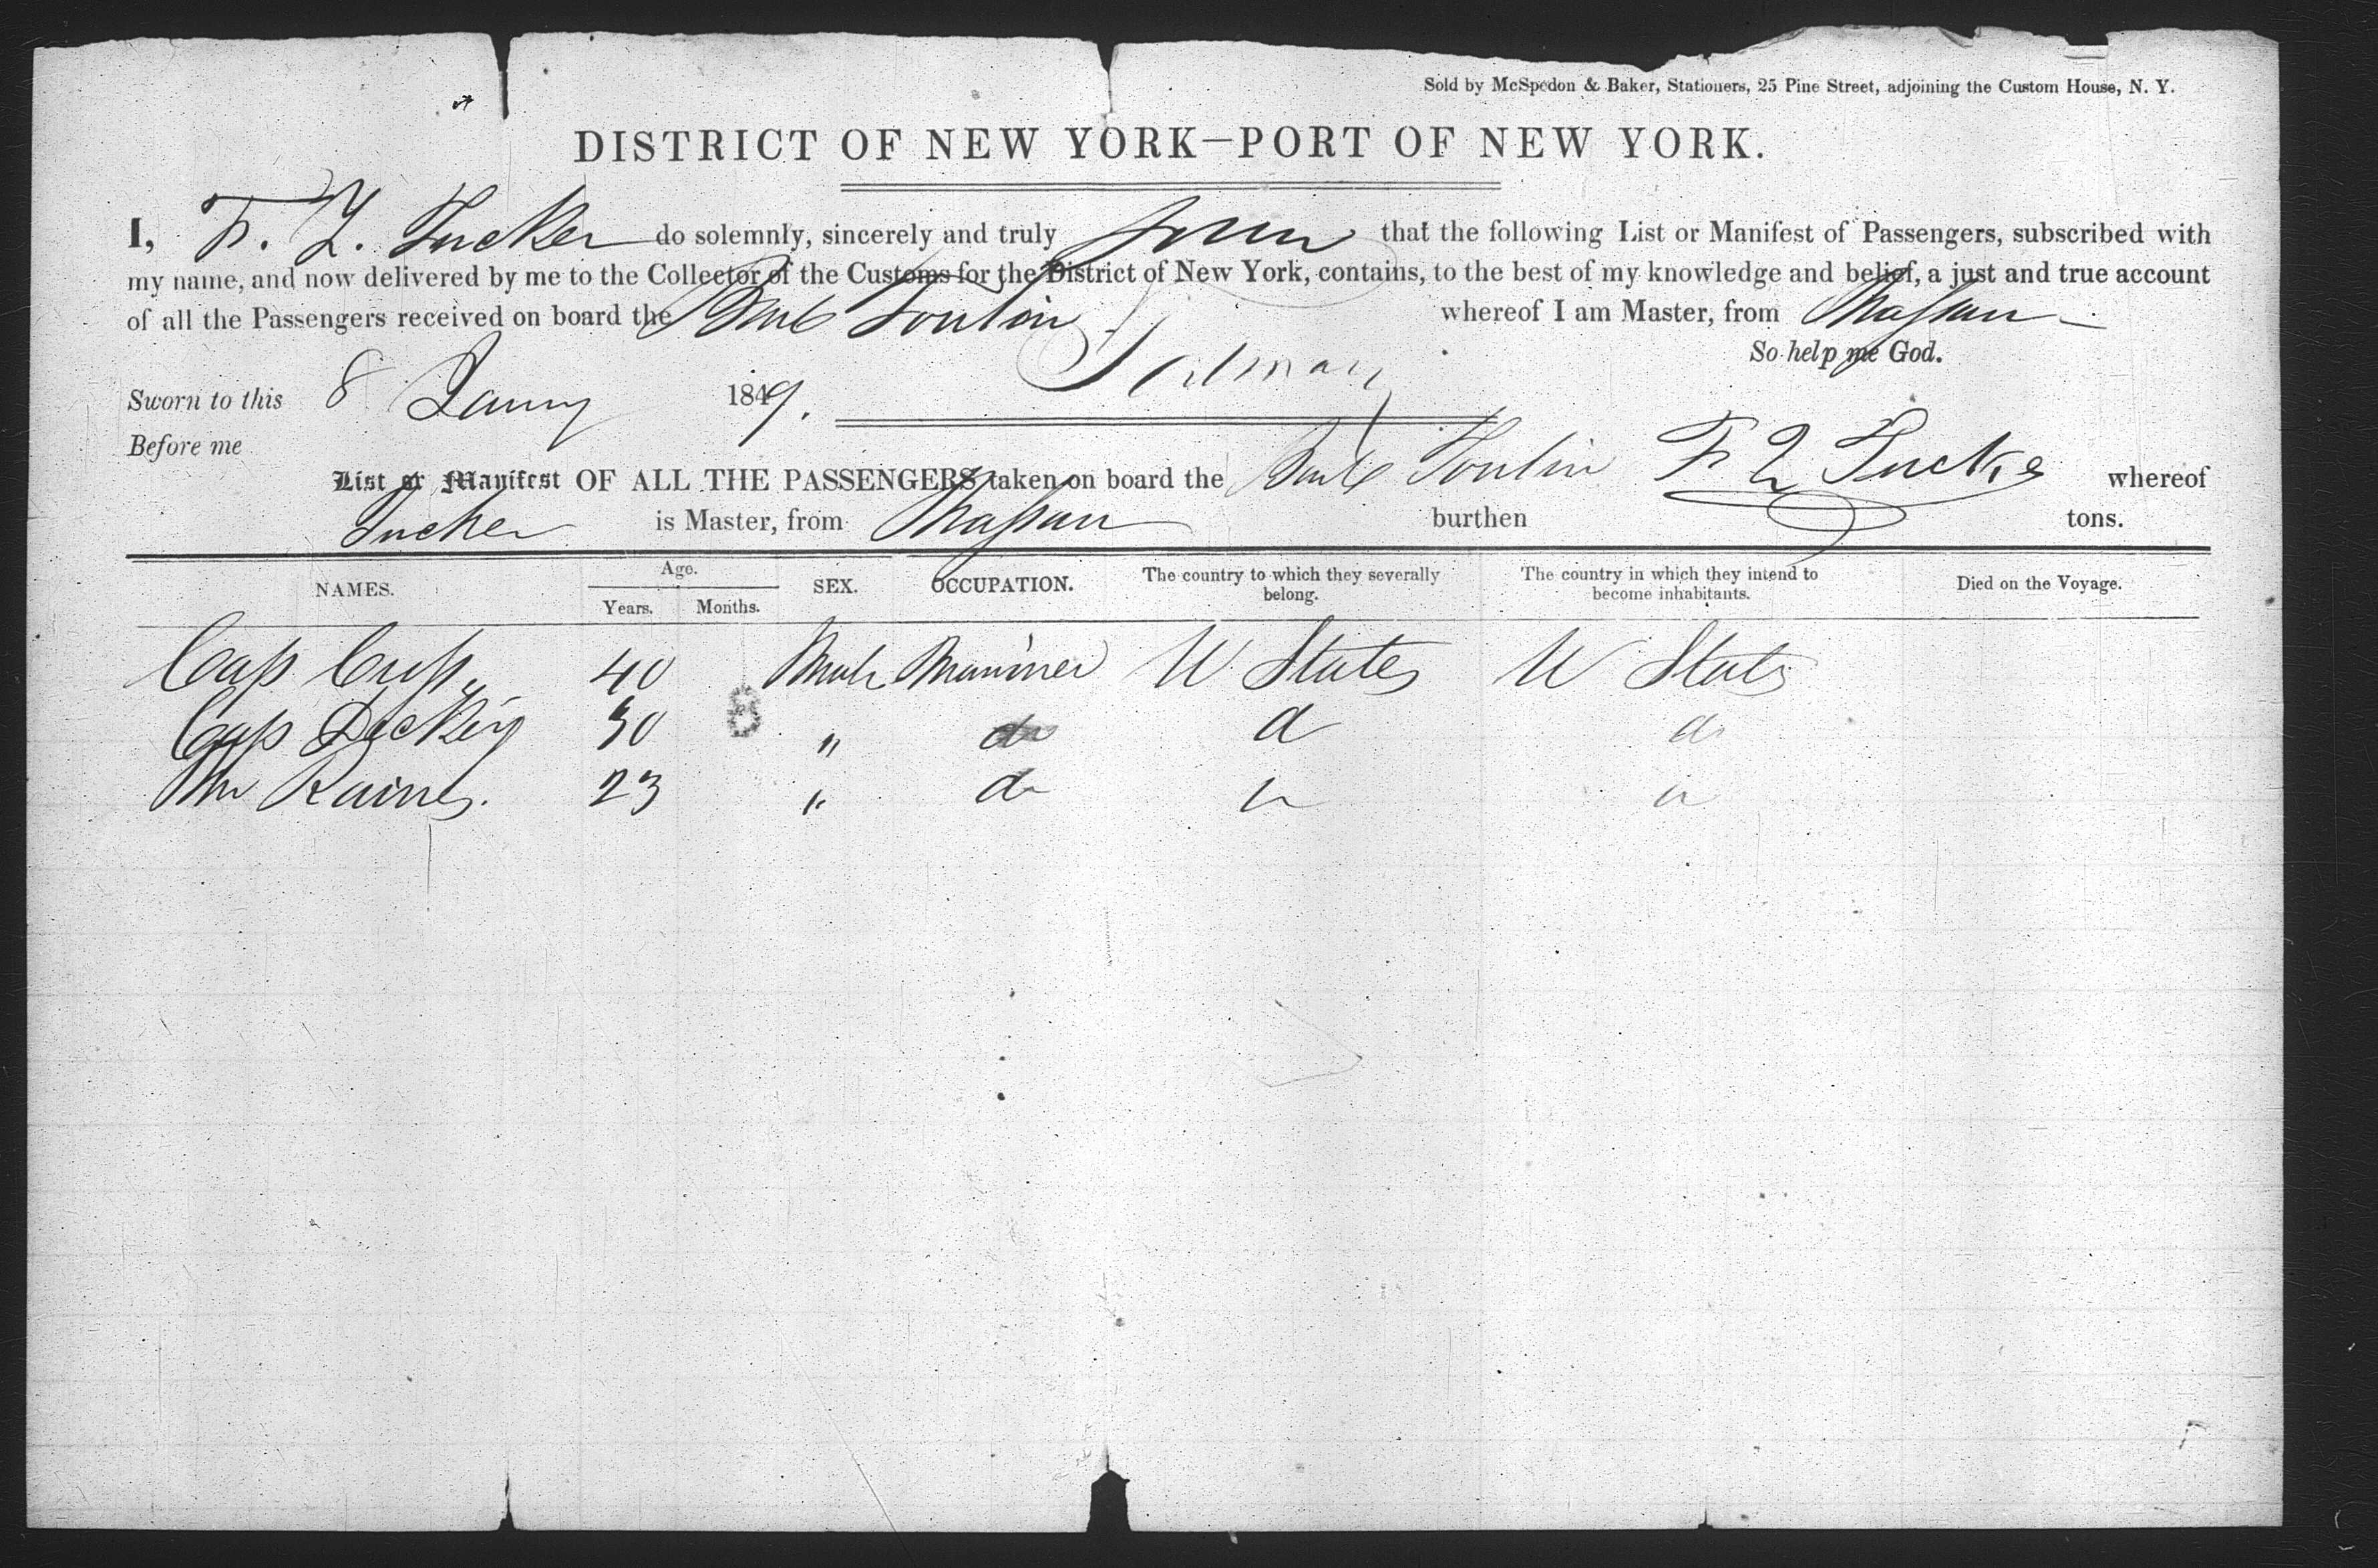 Sold by McSpedon & Baker, Stationers, 25 Pine Street, adjoining the Custom House, N. Y.
DISTRICT OF NEW YORK—PORT OF NEW YORK.
I, F. Z. Tucker do solemnly, sincerely and truly that the following List or Manifest of Passengers, subscribed with
my name, and now delivered by me to the Collector of the Customs for the District of New York, contains, to the best of my knowledge and belief, a just and true account
of all the Passengers received on board the whereof I am Master, from Nassau
So help me God.
Sworn to this 8 Jany 1849.
Before me
List or Manifest OF ALL THE PASSENGERS taken on board the F Z Tucker whereof
Tucker is Master, from Nassau burthen tons.
NAMES. Age. Years. Months. SEX. OCCUPATION. The country to which they severally belong. The country in which they intend to become inhabitants. Died on the Voyage.
Cap 40 Male Mariner U States U States
Cap 30 " do d do
Mr Raines. 23 " do " "